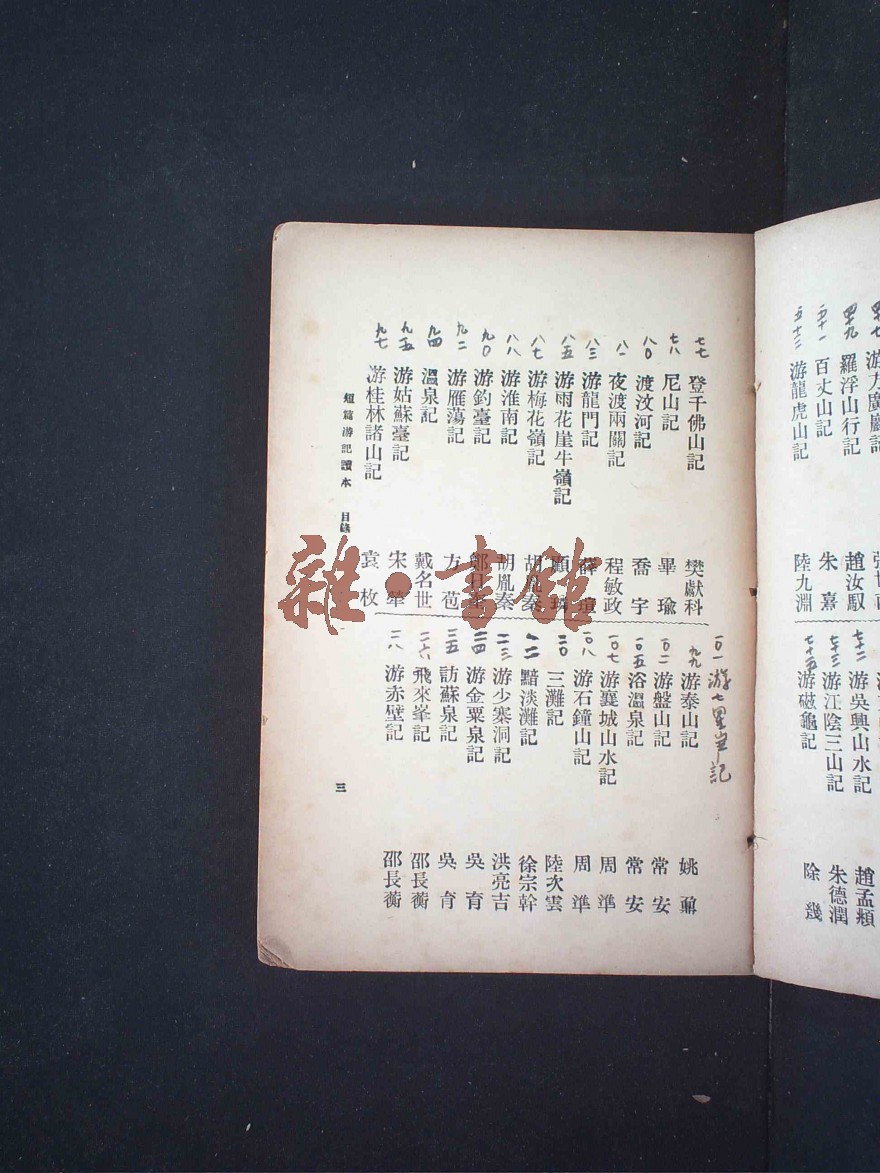 羅浮山行記 趙汝馭
百丈山記 朱熹
五十三 游龍虎山記 陸九淵
七十二 游吳興山水記 趙孟頫
七十三 游江陰三山記 朱德潤
七十五 游磁龜記
七七 登千佛山記 樊獻科
七八 尼山記 畢瑜
八〇 渡汶河記 喬宇
八一 夜渡兩關記 程敏政
八三 游龍門記 薛瑄
八五 游雨花崖牛嶺記 顧璘
八七 游梅花嶺記
八八 游淮南記 胡胤秦
九〇 游釣臺記 鄭日奎
九二 游雁蕩記 方苞
九四 溫泉記 戴名世
九五 游姑蘇臺記 宋犖
九七 游桂林諸山記 袁枚
一〇一 游七里記
九九 游泰山記 姚鼐
一〇二 游盤山記 常安
一〇五 浴溫泉記 常安
一〇七 游襄城山水記 周準
一〇八 游石鐘山記 周準
三灘記 陸次雲
黯淡灘記 徐宗幹
游少寨洞記 洪亮吉
游金粟泉記 吳育
訪蘇泉記 吳育
飛來峯記 邵長蘅
游赤壁記 邵長蘅
短篇游記讀本 目錄
三
雜·書館